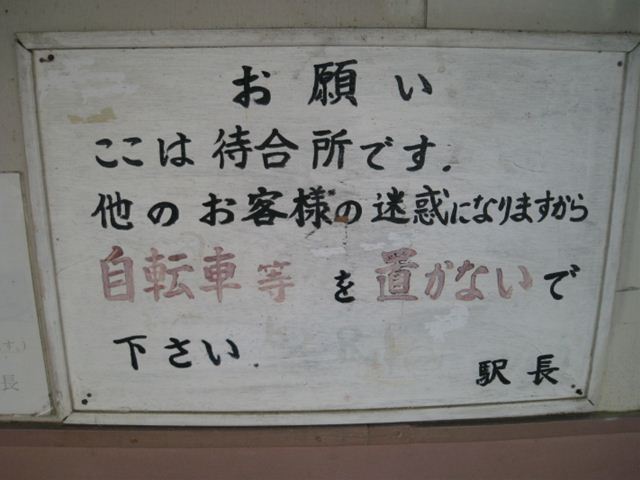 お願い
ここは待合所です.
他のお客様の迷惑になりますから
自転車等を置かないで
下さい.
駅長
す。)
長